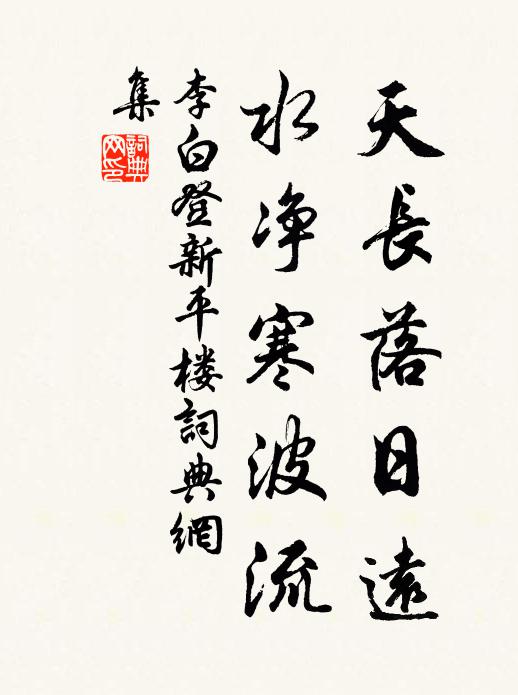 天長落日遠
水净寒波流
李白登新平楼詞典網
集
詞典
网印